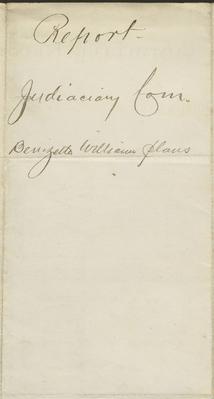 Report-
Judiaciary Com.
Benizette Williams plans